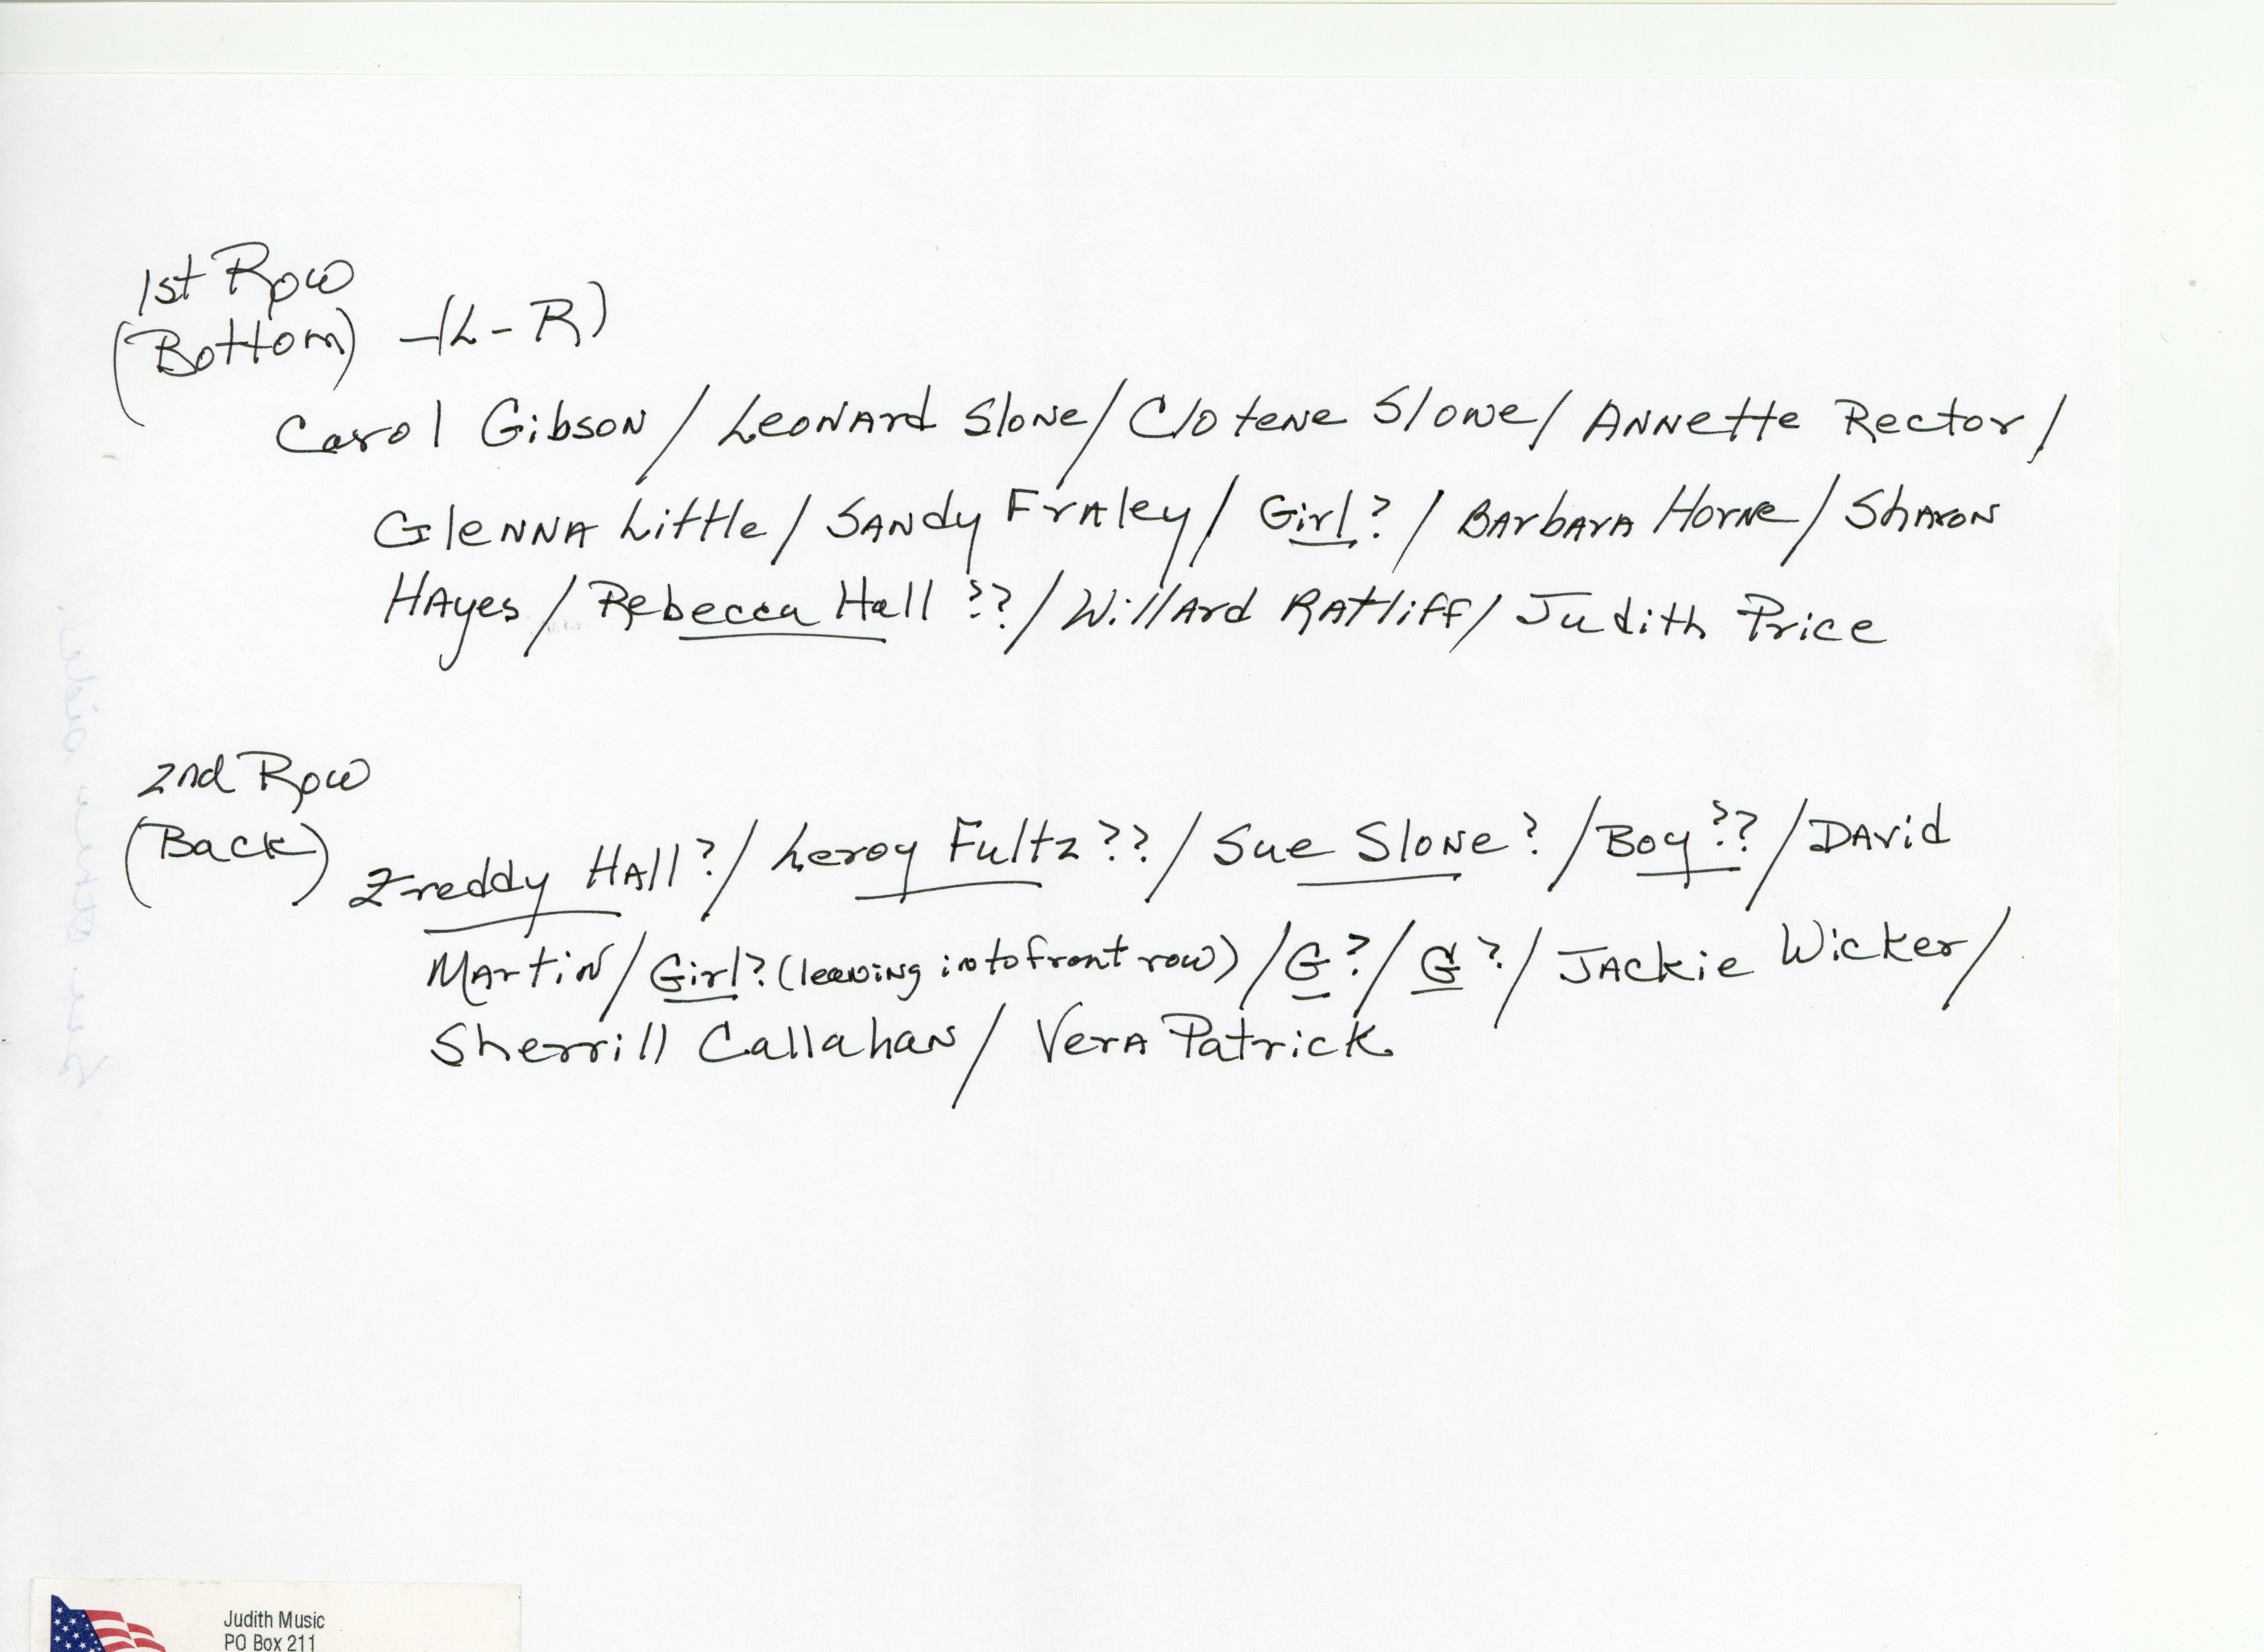 1st Row
(Bottom) - (L-R)
Carol Gibson / Leonard Slone / Clotene Slone / Annette Rector /
Glenna Little / Sandy Fraley / Girl? / Barbara Horne / Sharon
Hayes / Rebecca Hall ?? / Willard Ratliff / Judith Price
2nd Row
(Back)
Freddy Hall? / Leroy Fultz ?? / Sue Slone? / Boy ?? / David
Martin / Girl? (leaning into front row) / G? / G? / Jackie Wicker /
Sherrill Callahan / Vera Patrick
Judith Music
PO Box 211